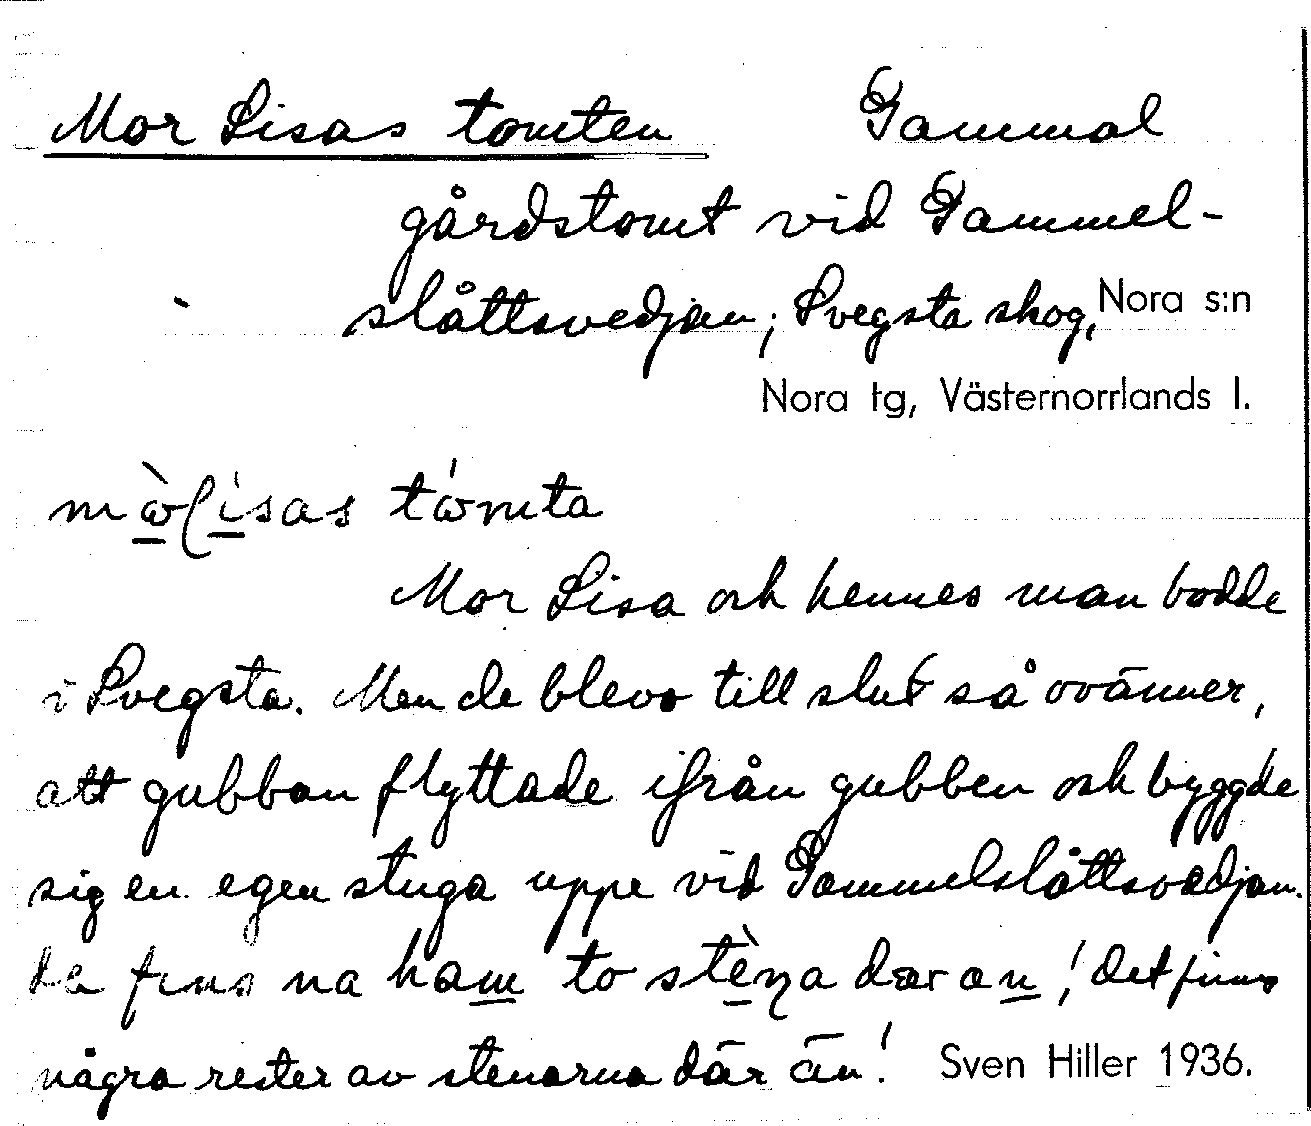 Mor Lisas tomten Gammal
gårdstomt vid Gammel-
slåttsvedjan; Svegsta skog, Nora s:n
Nora tg, Västernorrlands l.
mɷ̀lísas tɷ́mta
Mor Lisa och hennes man bodde
i Svegsta. Men de blevo till slut så ovänner,
att gubban flyttade ifrån gubben och byggde
sig en egen stuga uppe vid Gammelslåttsvedjan.
de fins na ham to stèŋa dær an! det finns
några rester av stenarna där än! Sven Hiller 1936.